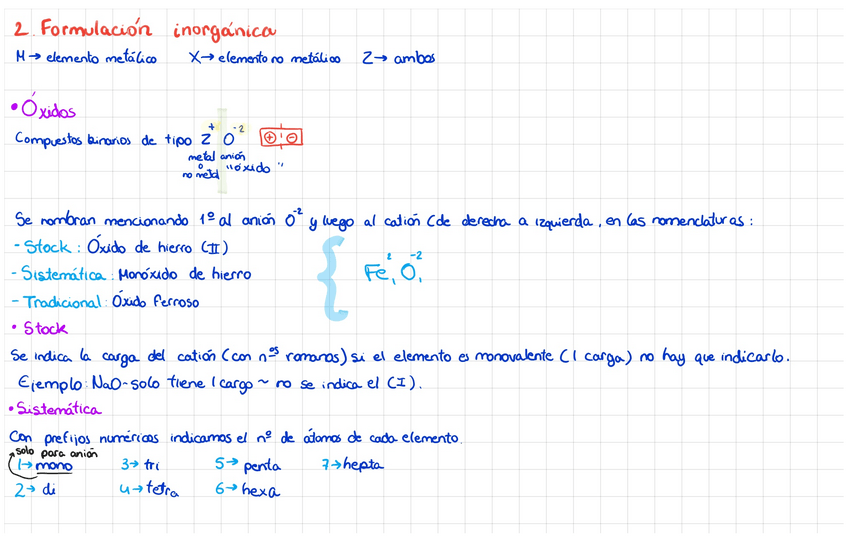 2. Formulación inorgánica
M→ elemento metálico X→ elemento no metálico Z→ ambos
• Óxidos
Compuestos binarios de tipo Z⁺ O⁻² ⊕ ⊖
metal anión
o "óxido"
no metal
Se nombran mencionando 1º al anión O⁻² y luego al catión (de derecha a izquierda, en las nomenclaturas:
- Stock: Óxido de hierro (II)
- Sistemática: Monóxido de hierro
Fe₁² O₁⁻²
- Tradicional: Óxido ferroso
• Stock
Se indica la carga del catión (con nºs romanos) si el elemento es monovalente (1 carga) no hay que indicarlo.
Ejemplo: NaO - solo tiene 1 cargo ~ no se indica el (I).
• Sistemática
Con prefijos numéricos indicamos el nº de átomos de cada elemento.
solo para anión
1→ mono 3→ tri 5→ penta 7→ hepta
2→ di 4→ tetra 6→ hexa